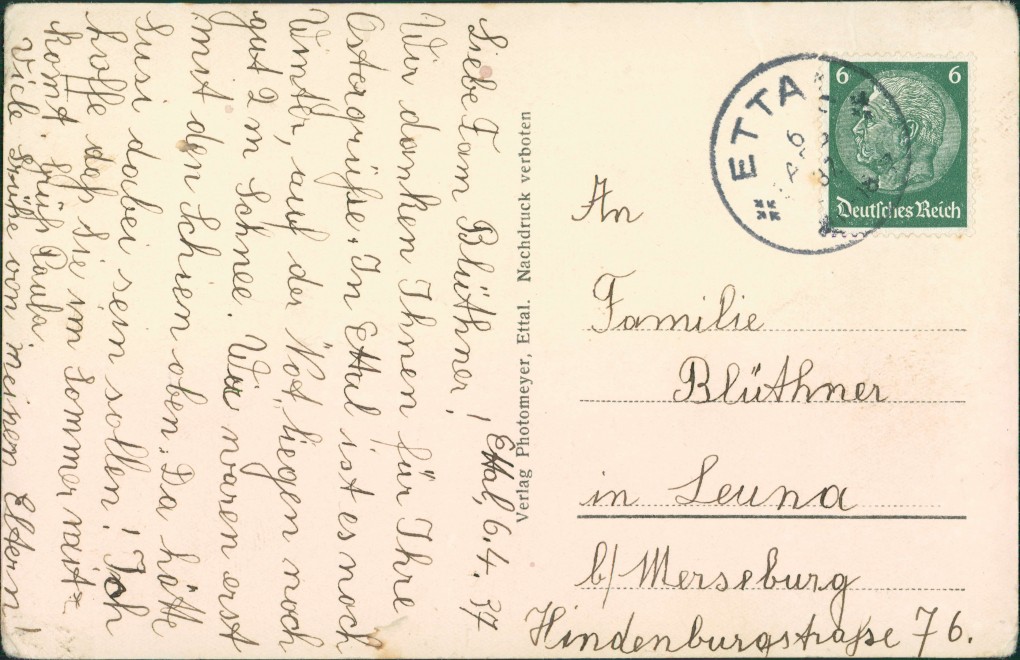 Ettal, 6.4.37
Liebe Fam Blüthner!
Wir danken Ihnen für Ihre
Ostergrüße. In Ettal ist es noch
Winter, auf der Not liegen noch
gut 2 m Schnee. Wir waren erst
mit den Schien oben. Da hätte
Susi dabei sein sollen! Ich
hoffe daß Sie im Sommer
komt. Gruß Paula.
Viele Grüße von meinen Eltern!
Verlag Photomeyer, Ettal. Nachdruck verboten
ETTA
6 6
Deutsches Reich
An
Familie
Blüthner
in Leuna
b/Merseburg
Hindenburgstraße 76.